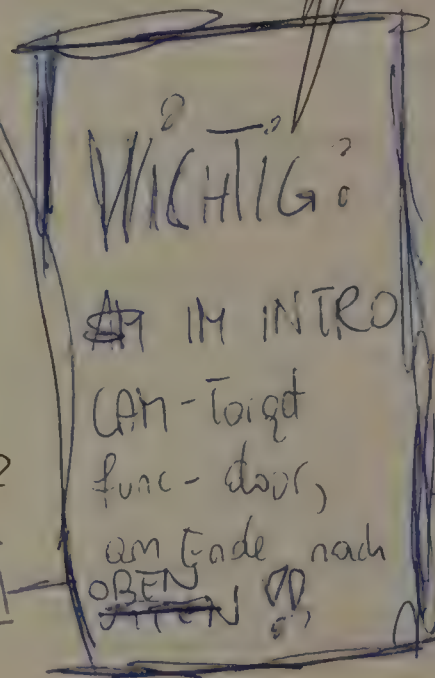 WICHTIG:
IM INTRO
CAM-Target
func-door,
am Ende nach
OBEN !!